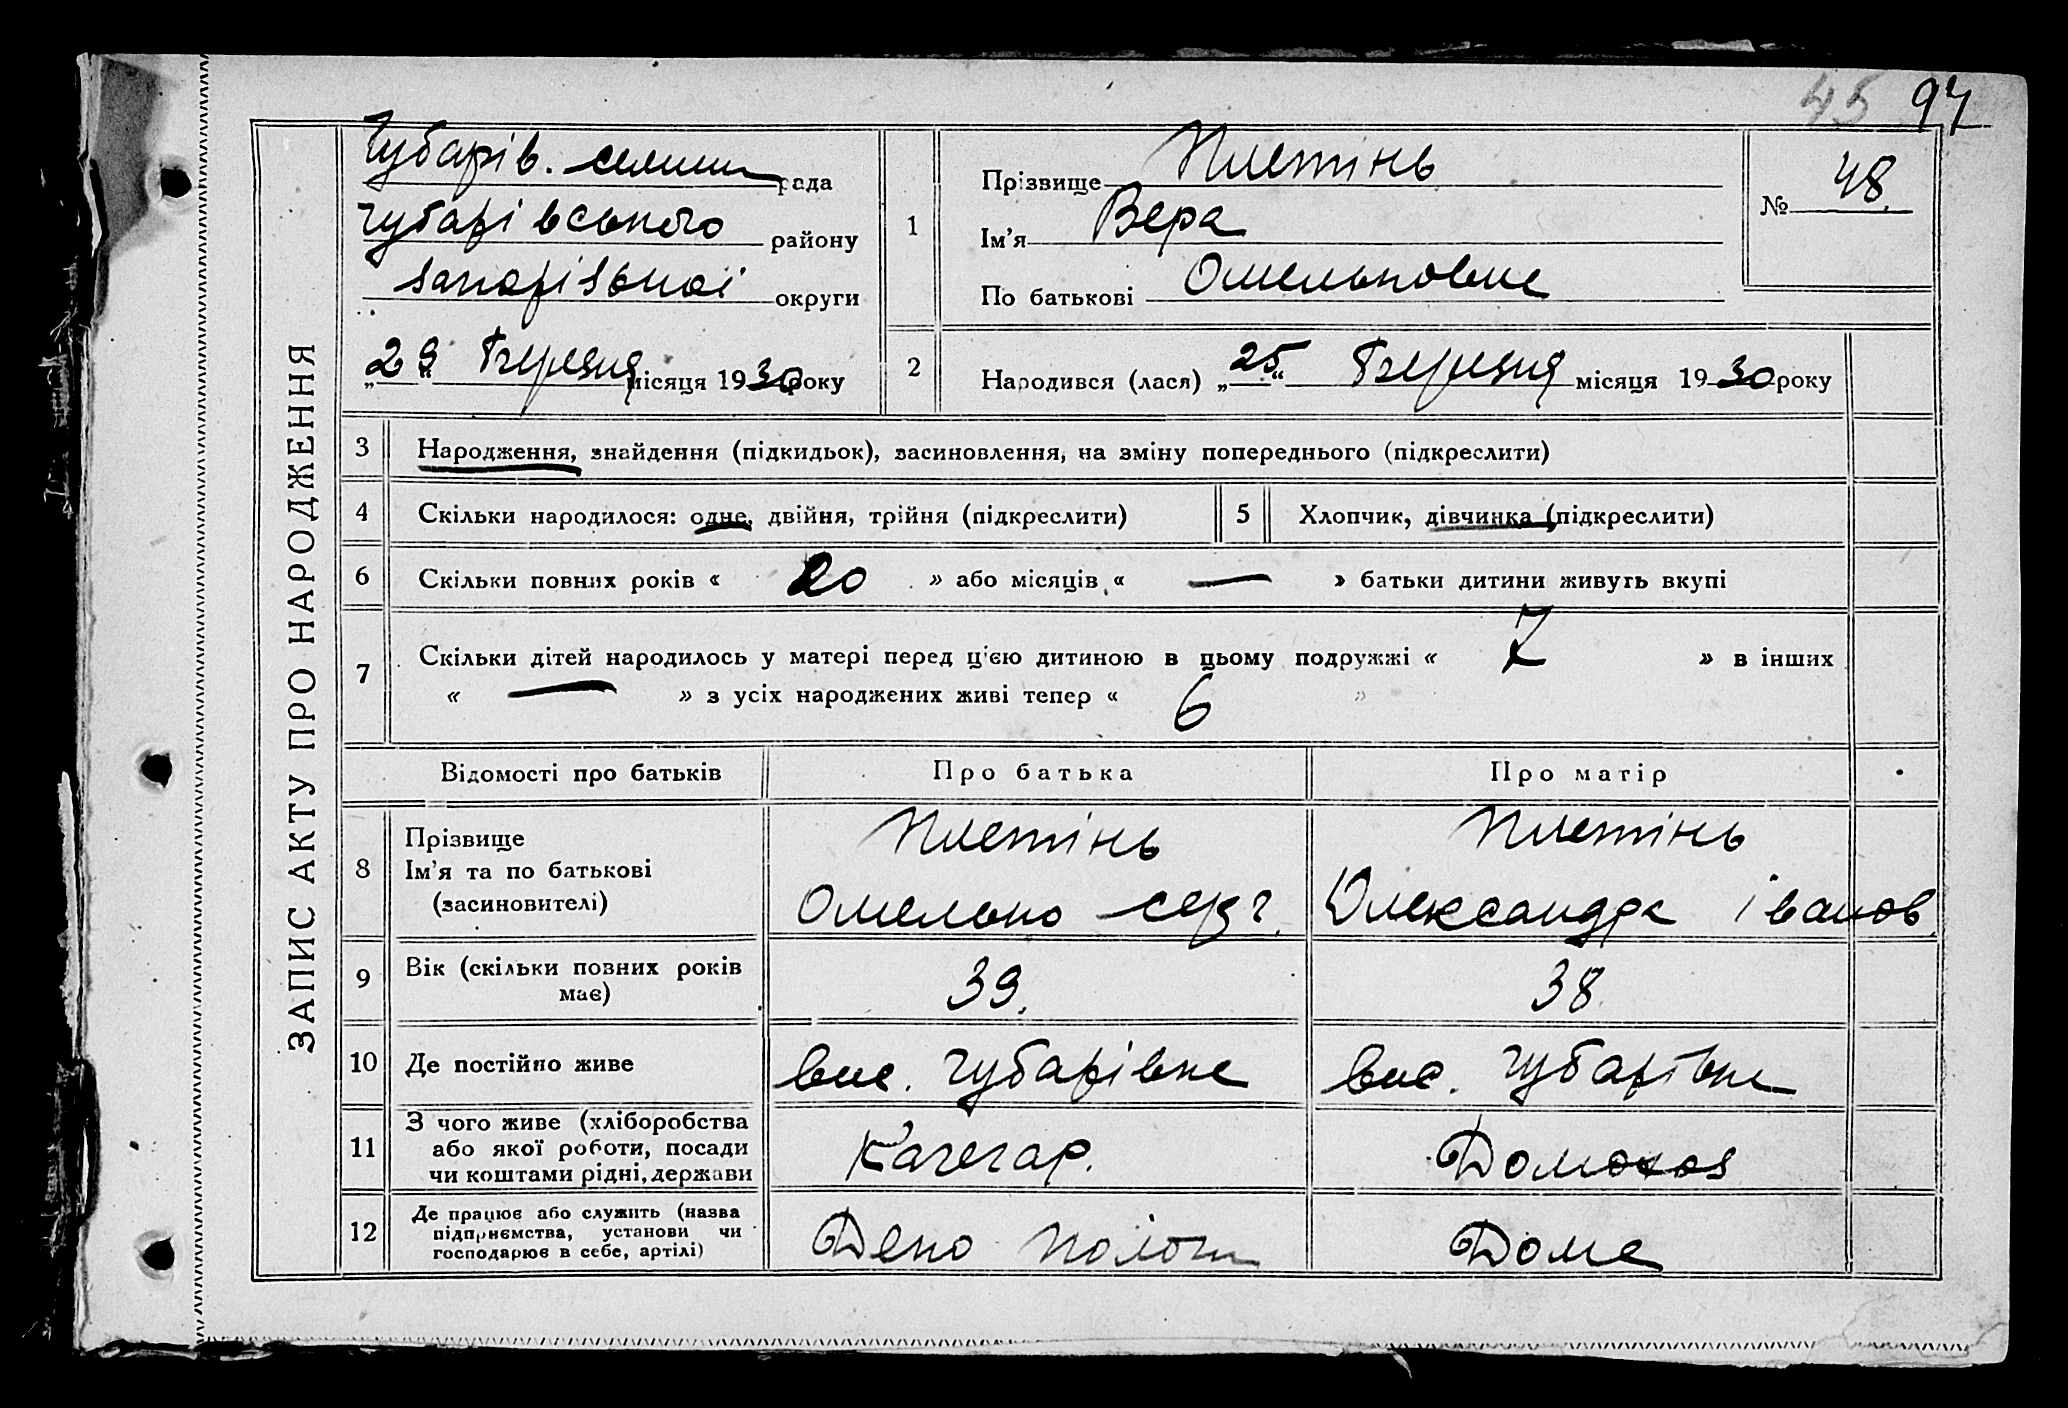 45 97
Чубарів. селищ рада
Чубарівського району
Запорізької округи
„29“ березня місяця 1930 року
ЗАПИС АКТУ ПРО НАРОДЖЕННЯ
1
Прізвище Плетінь
Ім'я Вера
По батькові Омельковне
№ 48.
2
Народився (лася) „25“ березня місяця 1930 року
3 Народження, знайдення (підкидьок), засиновлення, на зміну попереднього (підкреслити)
4 Скільки народилося: одне, двійня, трійня (підкреслити)
5 Хлопчик, дівчинка (підкреслити)
6 Скільки повних років « 20 » або місяців « — » батьки дитини живуть вкупі
7 Скільки дітей народилось у матері перед ц'єю дитиною в цьому подружжі « 7 » в інших
« — » з усіх народжених живі тепер « 6 »
Відомості про батьків Про батька Про матір
8 Прізвище
Ім'я та по батькові
(засиновителі)
Плетінь
Омелько Серг.
Плетінь
Олександра Іванов.
9 Вік (скільки повних років
має)
39.
38.
10 Де постійно живе
вис. Чубарівке
вис. Чубарівке
11 З чого живе (хліборобства
або якої роботи, посади
чи коштами рідні, держави
Качегар.
Домохоз
12 Де працює або служить (назва
підприємства, установи чи
господарює в себе, артілі)
Депо Пологи
Доме